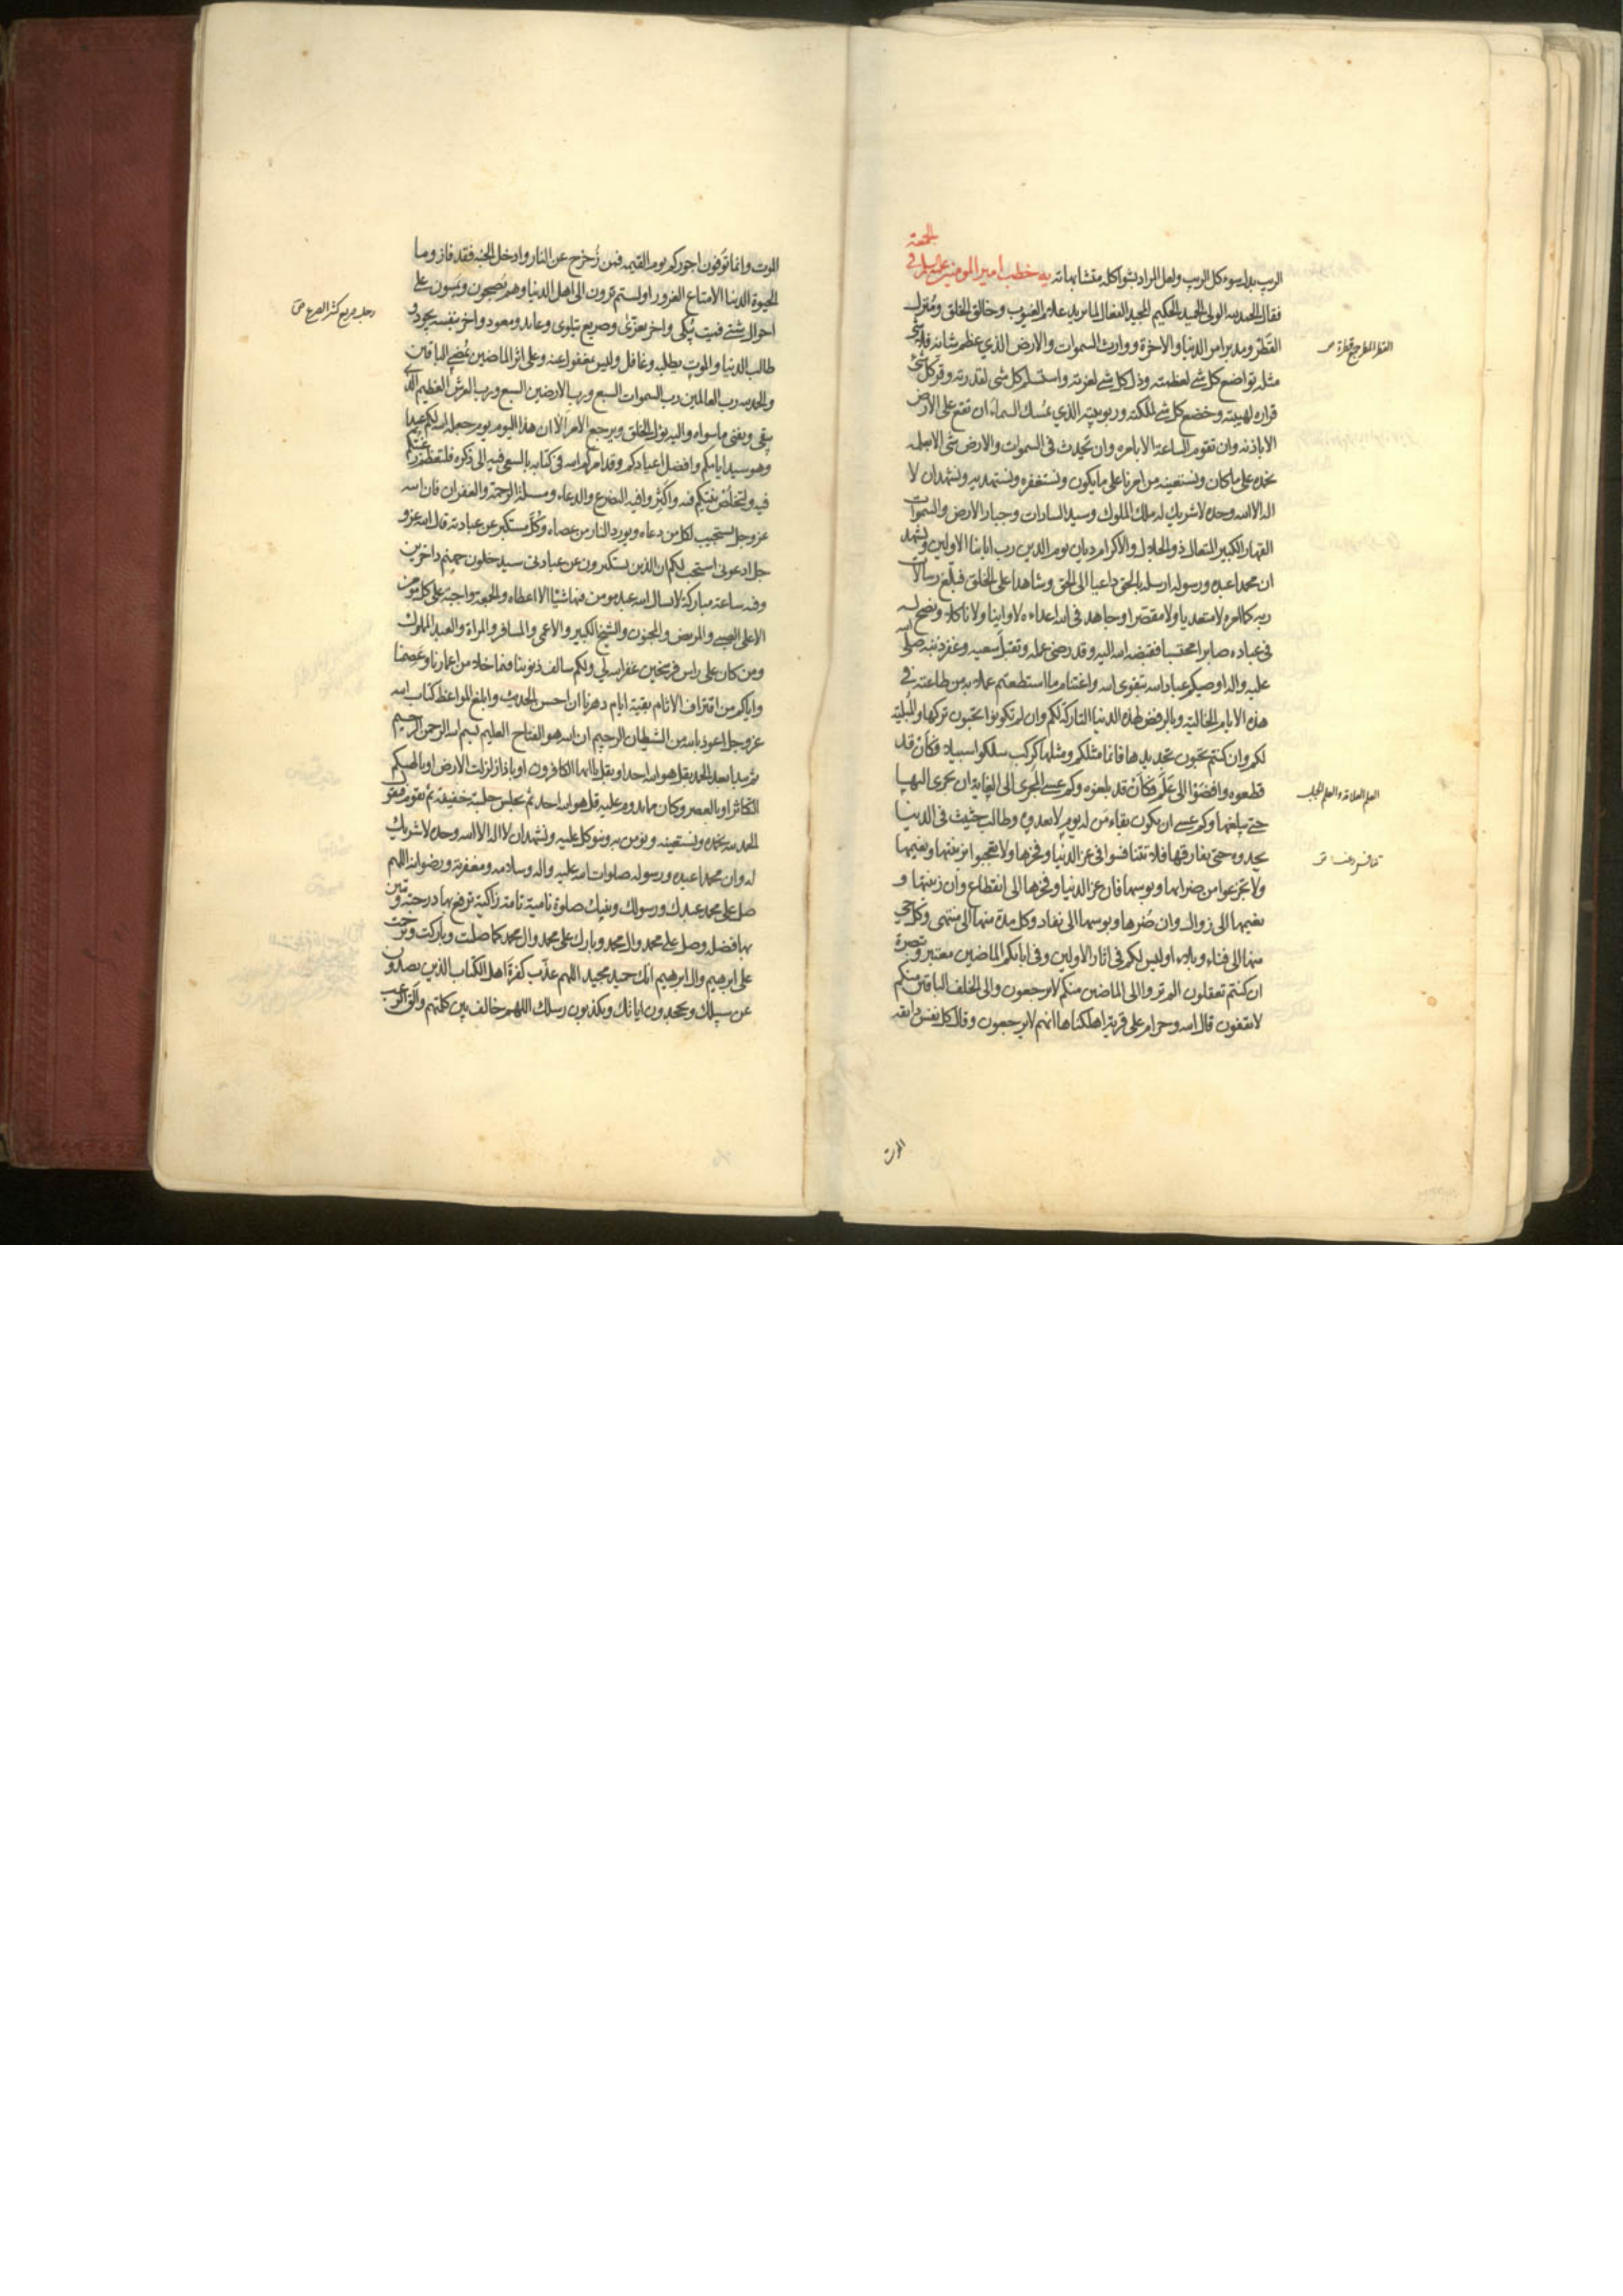 للجمعة
الريب بدل سوء كل الريب ولعل المراد بشواكله متشابهاته يه خطب امير المومنين عليه السلم في
فقال الحمد لله الولي الحميد الحكيم المجيد الفعال لما يريد علام الغيوب وخالق الخلق ومنزل
القطر ومدبر امر الدنيا والاخرة ووارث السموات والارض الذي عظم شانه فلا شئ
مثله تواضع كل شي لعظمته وذل كل شي لعزته واستسلم كل شي لقدرته وقر كل شئ
قراره لهيبته وخضع كل شي لملكته وربوبيته الذي يمسك السماء ان تقع على الارض
الا باذنه وان تقوم الساعة الا بامره وان يحدث في السموات والارض شي الا بعلمه
نحمده على ما كان ونستعينه من امرنا على ما يكون ونستغفره ونستهديه ونشهد ان لا
اله الا الله وحده لا شريك له ملك الملوك وسيد السادات وجبار الارض والسموات
القهار الكبير المتعال ذو الجلال والاكرام ديان يوم الدين رب ابائنا الاولين ونشهد
ان محمدا عبده ورسوله ارسله بالحق داعيا الى الحق وشاهدا على الخلق فبلغ رسالات
ربه كما امره لا متعديا ولا مقصرا وجاهد في الله اعداءه لا وانيا ولا ناكلا ونصح له
في عباده صابرا محتسبا فقبضه الله اليه وقد رضي عمله وتقبل سعيه وغفر ذنبه صلى الله
عليه واله اوصيكم عباد الله بتقوى الله واغتنام ما استطعتم عملا به من طاعته في
هذه الايام الخالية وبالرفض لهذه الدنيا التاركة لكم وان لم تكونوا تحبون تركها والمبلية
لكم وان كنتم تحبون تجديدها فانما مثلكم ومثلها كركب سلكوا سبيلا فكان قد
قطعوه وافضوا الى علم فكان قد بلغوه وكم عسى المجري الى الغاية ان يجري اليها
حتى يبلغها وكم عسى ان يكون بقاء من له يوم لا يعدوه وطالب حثيث في الدنيا
يحدوه حتى يفارقها فلا تتنافسوا في عز الدنيا وفخرها ولا تعجبوا بزينتها ونعيمها
ولا تجزعوا من ضرائها وبوسها فان عز الدنيا وفخرها الى انقطاع وان زينتها و
نعيمها الى زوال وان ضرها وبوسها الى نفاد وكل مدة منها الى منتهى وكل حي
منها الى فناء وبلاء اوليس لكم في اثار الاولين وفي ابائكم الماضين معتبر وتبصرة
ان كنتم تعقلون الم تروا الى الماضين منكم لا يرجعون والى الخلف الباقين منكم
لا يقفون قال الله وحرام على قرية اهلكناها انهم لا يرجعون وقال كل نفس ذائقة
الموت
القطر المطر جمع قطرة ص
العلم العلامة والعلم الجبل
الموت وانما توفون اجوركم يوم القيمة فمن زحزح عن النار وادخل الجنة فقد فاز وما
الحيوة الدنيا الا متاع الغرور اولستم ترون الى اهل الدنيا وهم يصبحون ويمسون على
احوال شتى فميت يبكى واخر يعزى وصريع يتلوى وعايد ومعود واخر بنفسه يجود و
طالب الدنيا والموت يطلبه وغافل وليس بمغفول عنه وعلى اثر الماضين يمضي الباقين
والحمد لله رب العالمين رب السموات السبع ورب الارضين السبع ورب العرش العظيم الذي
يبقى ويفنى ما سواه واليه يؤل الخلق ويرجع الامر الا ان هذا اليوم يوم جعله الله لكم عيدا
وهو سيد ايامكم وافضل اعيادكم وقد امركم الله في كتابه بالسعي فيه الى ذكره فلتعظم رغبتكم
فيه ولتخلص نيتكم فيه واكثروا فيه التضرع والدعاء ومسئلة الرحمة والغفران فان الله
عز وجل يستجيب لكل من دعاه ويورد النار من عصاه وكل مستكبر عن عبادته قال الله عز و
جل ادعوني استجب لكم ان الذين يستكبرون عن عبادتي سيدخلون جهنم داخرين
وفيه ساعة مباركة لا يسال الله عبد مومن فيها شيئا الا اعطاه والجمعة واجبة على كل مومن
الا على الصبي والمريض والمجنون والشيخ الكبير والاعمى والمسافر والمراة والعبد المملوك
ومن كان على راس فرسخين غفر الله لي ولكم سالف ذنوبنا فيما خلا من اعمارنا وعصمنا
واياكم من اقتراف الاثام بقية ايام دهرنا ان احسن الحديث وابلغ المواعظ كتاب الله
عز وجل اعوذ بالله من الشيطان الرجيم ان الله هو الفتاح العليم بسم الله الرحمن الرحيم
ثم يبدا بعد الحمد بقل هو الله احد او بقل يا ايها الكافرون او باذا زلزلت الارض او بالهيكم
التكاثر او بالعصر وكان مما يدوم عليه قل هو الله احد ثم يجلس جلسة خفيفة ثم يقوم فيقول
الحمد لله نحمده ونستعينه ونومن به ونتوكل عليه ونشهد ان لا اله الا الله وحده لا شريك
له وان محمدا عبده ورسوله صلوات الله عليه واله وسلامه ومغفرته ورضوانه اللهم
صل على محمد عبدك ورسولك ونبيك صلوة نامية تامة زاكية ترفع بها درجته وتبين
بها فضله وصل على محمد وال محمد وبارك على محمد وال محمد كما صليت وباركت وترحمت
على ابرهيم وال ابرهيم انك حميد مجيد اللهم عذب كفرة اهل الكتاب الذين يصدون
عن سبيلك ويجحدون اياتك ويكذبون رسلك اللهم خالف بين كلمتهم والق الرعب
رجل صريع كثير الصرع